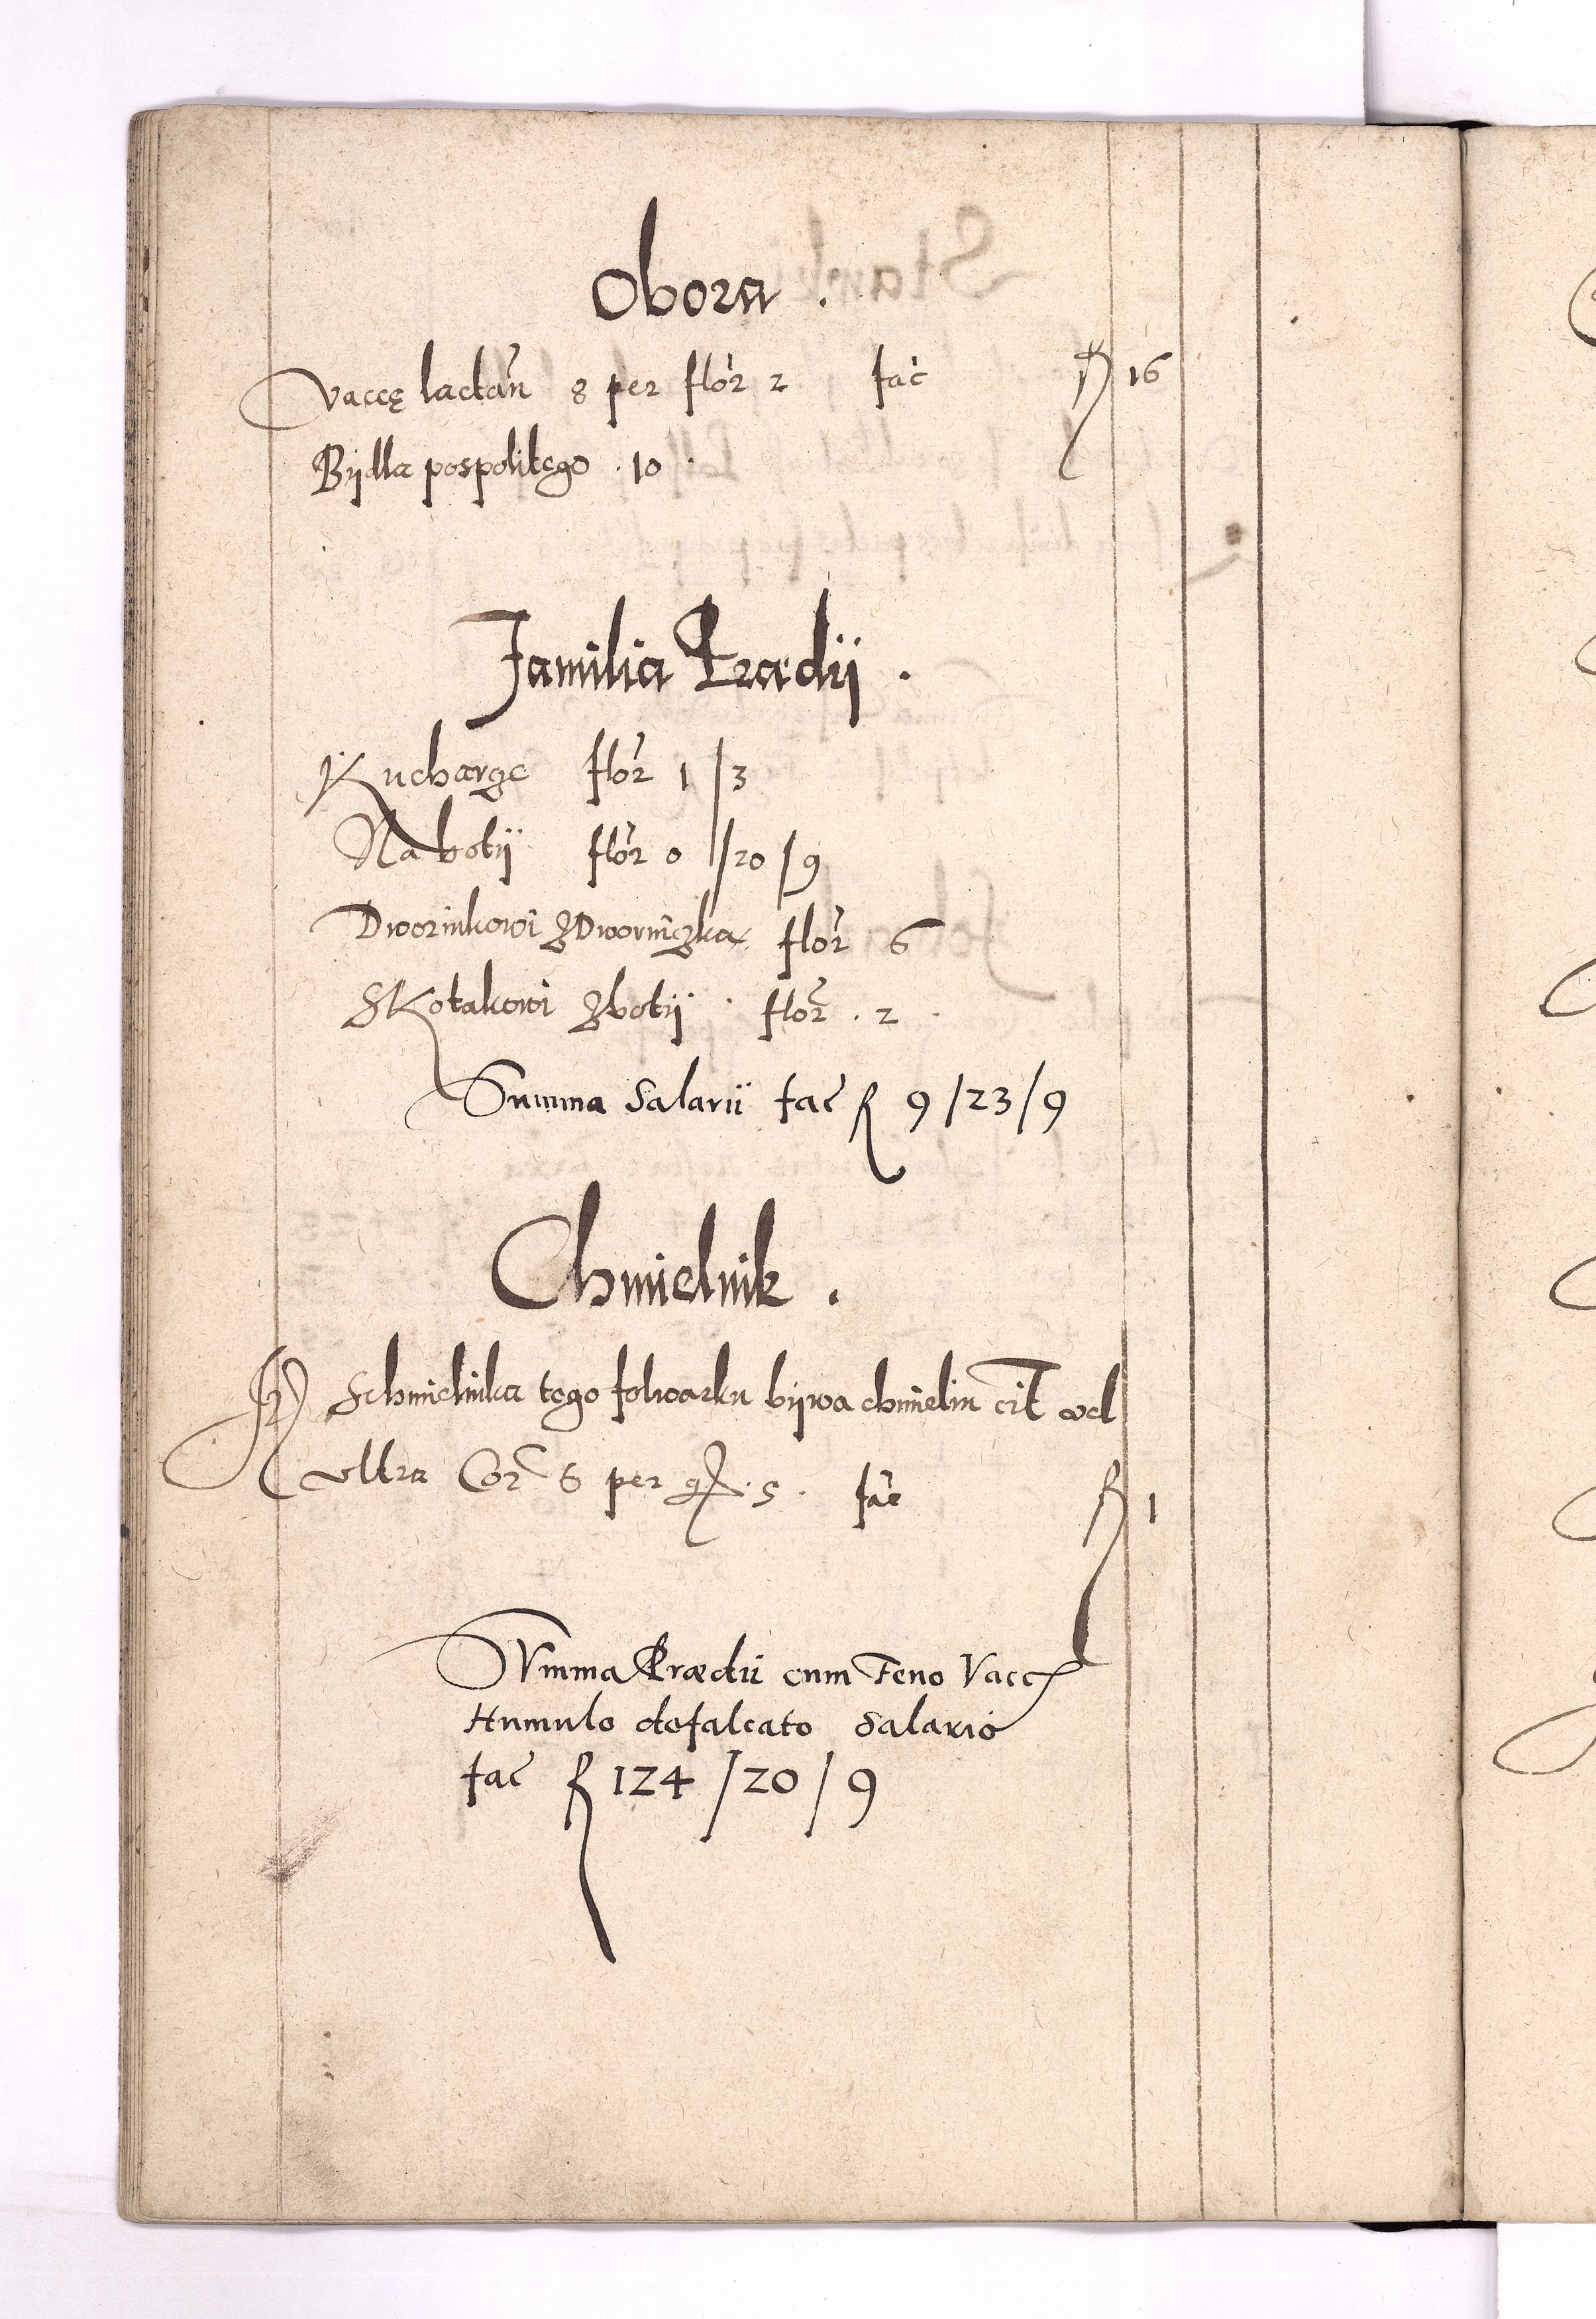 Obora .
Vaccę lactan̄ 8 per flor 2 fac ꝶ 16
Bydla pospolitego . 10 .
Familia Prædii .
Kucharge flor 1 / 3
Na boty flor 0 / 20 / 9
Dwornikowi z Dworniczka flor 6
Skotakowi z boty flor . 2 .
Summa Salarii fac ꝶ 9 / 23 / 9
Chmielnik .
Schmielnika tego folwarku bywa chmielu cit vel
ultra Cor 6 per gr . 5 . fac ꝶ 1
Summa Prædii cum Feno Vacc
Humulo defalcato Salario
fac ꝶ 124 / 20 / 9